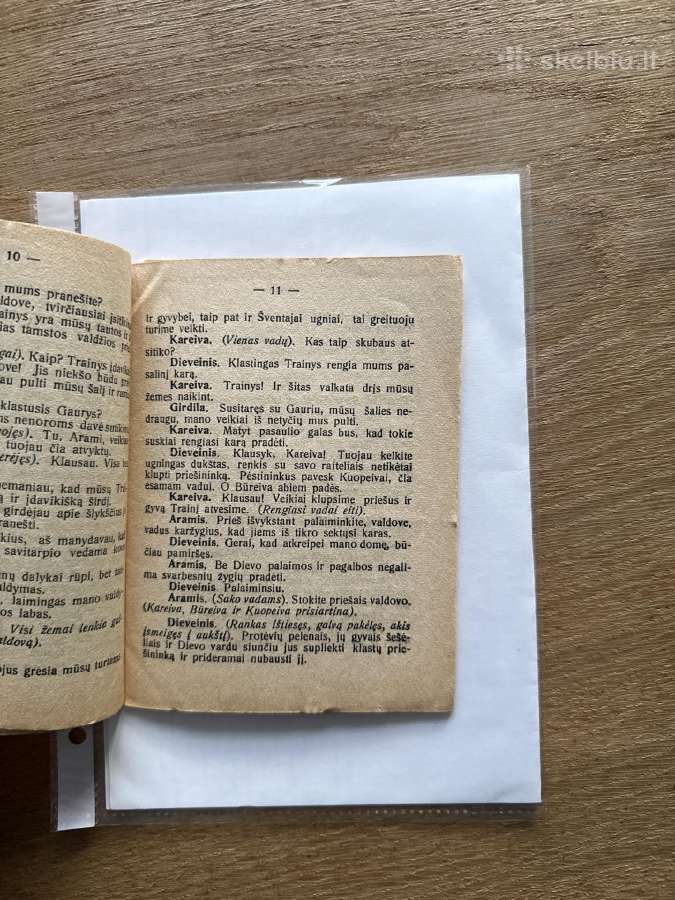 skelbiu.lt
10 —
mums pranešite?
dove, tvirčiausiai įsitikin
ainys yra mūsų tautos ir
ias tamstos valdžios
gai). Kaip? Trainys įdavik
ove! Jis niekšo būdu
au pulti mūsų šalį ir ram
klastusis Gaurys?
ns nenoroms davė sutikim
ojęs). Tu, Arami, veikiau
tuojau čia atvyktų.
erėjęs). Klausau. Visa bus
nemaniau, kad mūsų Tra
ir įdavikišką širdį.
girdėjau apie šlykščius
ranešti.
kius, aš manydavau, kad
savitarpio vedama kova
nų dalykai rūpi, bet
ldymas.
laimingas mano valdy-
os labas.
Visi žemai lenkia gal-
aldovą).
ojus gresia mūsų turtams
— 11 —
ir gyvybei, taip pat ir Šventajai ugniai, tai greituoju
turime veikti.
Kareiva. (Vienas vadų). Kas taip skubaus at-
sitiko?
Dieveinis. Klastingas Trainys rengia mums
pasalinį karą.
Kareiva. Trainys! Ir šitas valkata drįs mūsų
žemes naikint.
Girdila. Susitaręs su Gauriu, mūsų šalies ne-
draugu, mano veikiai iš netyčių mus pulti.
Kareiva. Matyt pasaulio galas bus, kad tokie
suskiai rengiasi karą pradėti.
Dieveinis. Klausyk, Kareiva! Tuojau kelkite
ugningas dukštas, renkis su savo raiteliais netikėtai
klupti priešininką. Pėstininkus pavesk Kuopeivai, čia
esamam vadui. O Būreiva abiem padės.
Kareiva. Klausau! Veikiai klupsime priešus ir
gyvą Trainį atvesime. (Rengiasi vadai eiti).
Aramis. Prieš išvykstant palaiminkite, valdove,
vadus karžygius, kad jiems iš tikro sektųsi karas.
Dieveinis. Gerai, kad atkreipei mano domę, bū-
čiau pamiršęs.
Aramis. Be Dievo palaimos ir pagalbos negali-
ma svarbesnių žygių pradėti.
Dieveinis. Palaiminsiu.
Aramis. (Sako vadams). Stokite priešais valdovo.
(Kareiva, Būreiva ir Kuopeiva prisiartina).
Dieveinis. (Rankas ištiesęs, galvą pakėlęs, akis
įsmeigęs į aukštį). Protėvių pelenais, jų gyvais šešė-
liais ir Dievo vardu siunčiu jus supliekti klastų prie-
šininką ir prideramai nubausti jį.